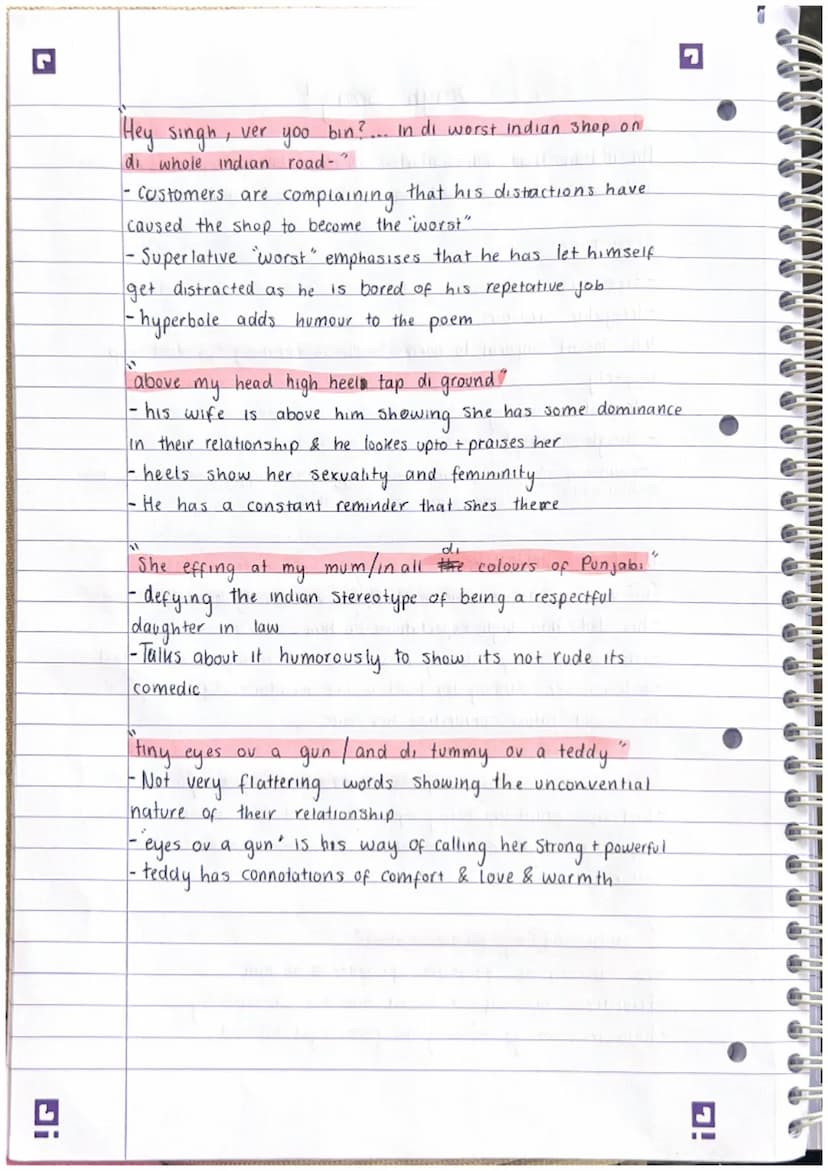 "Hey singh, ver yoo bin?... In di worst indian shop on
di whole indian road-"
- Customers are complaining that his distactions have
caused the shop to become the "worst"
- Superlative "worst" emphasises that he has let himself
get distracted as he is bored of his repetative job
- hyperbole adds humour to the poem
"above my head high heel tap di ground"
- his wife is above him showing she has some dominance
in their relationship & he lookes upto + praises her
- heels show her sexuality and femininity
- He has a constant reminder that shes there
"She effing at my mum/in all di colours of Punjabi"
- defying the indian stereotype of being a respectful
daughter in law
- Talks about it humorously to show its not rude its
comedic
"tiny eyes ov a gun / and di tummy ov a teddy"
- Not very flattering words showing the unconvential
nature of their relationship
- "eyes ov a gun" is his way of calling her strong + powerful
- teddy has connotations of comfort & love & warmth